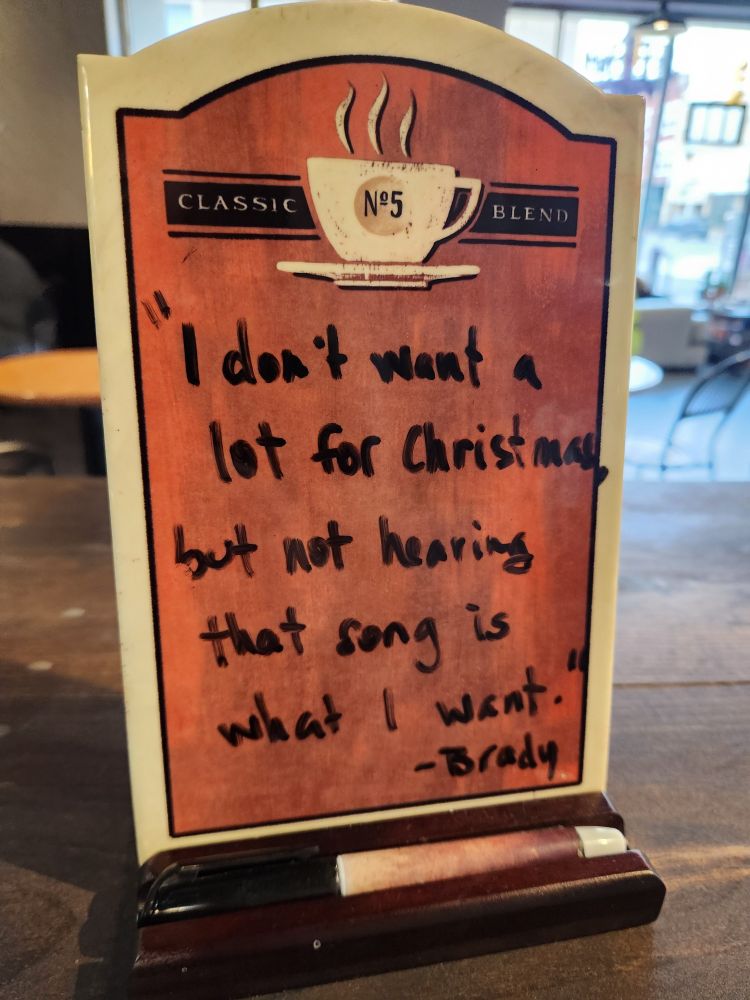 CLASSIC Nº5 BLEND
"I don't want a
lot for Christmas,
but not hearing
that song is
what I want."
-Brady